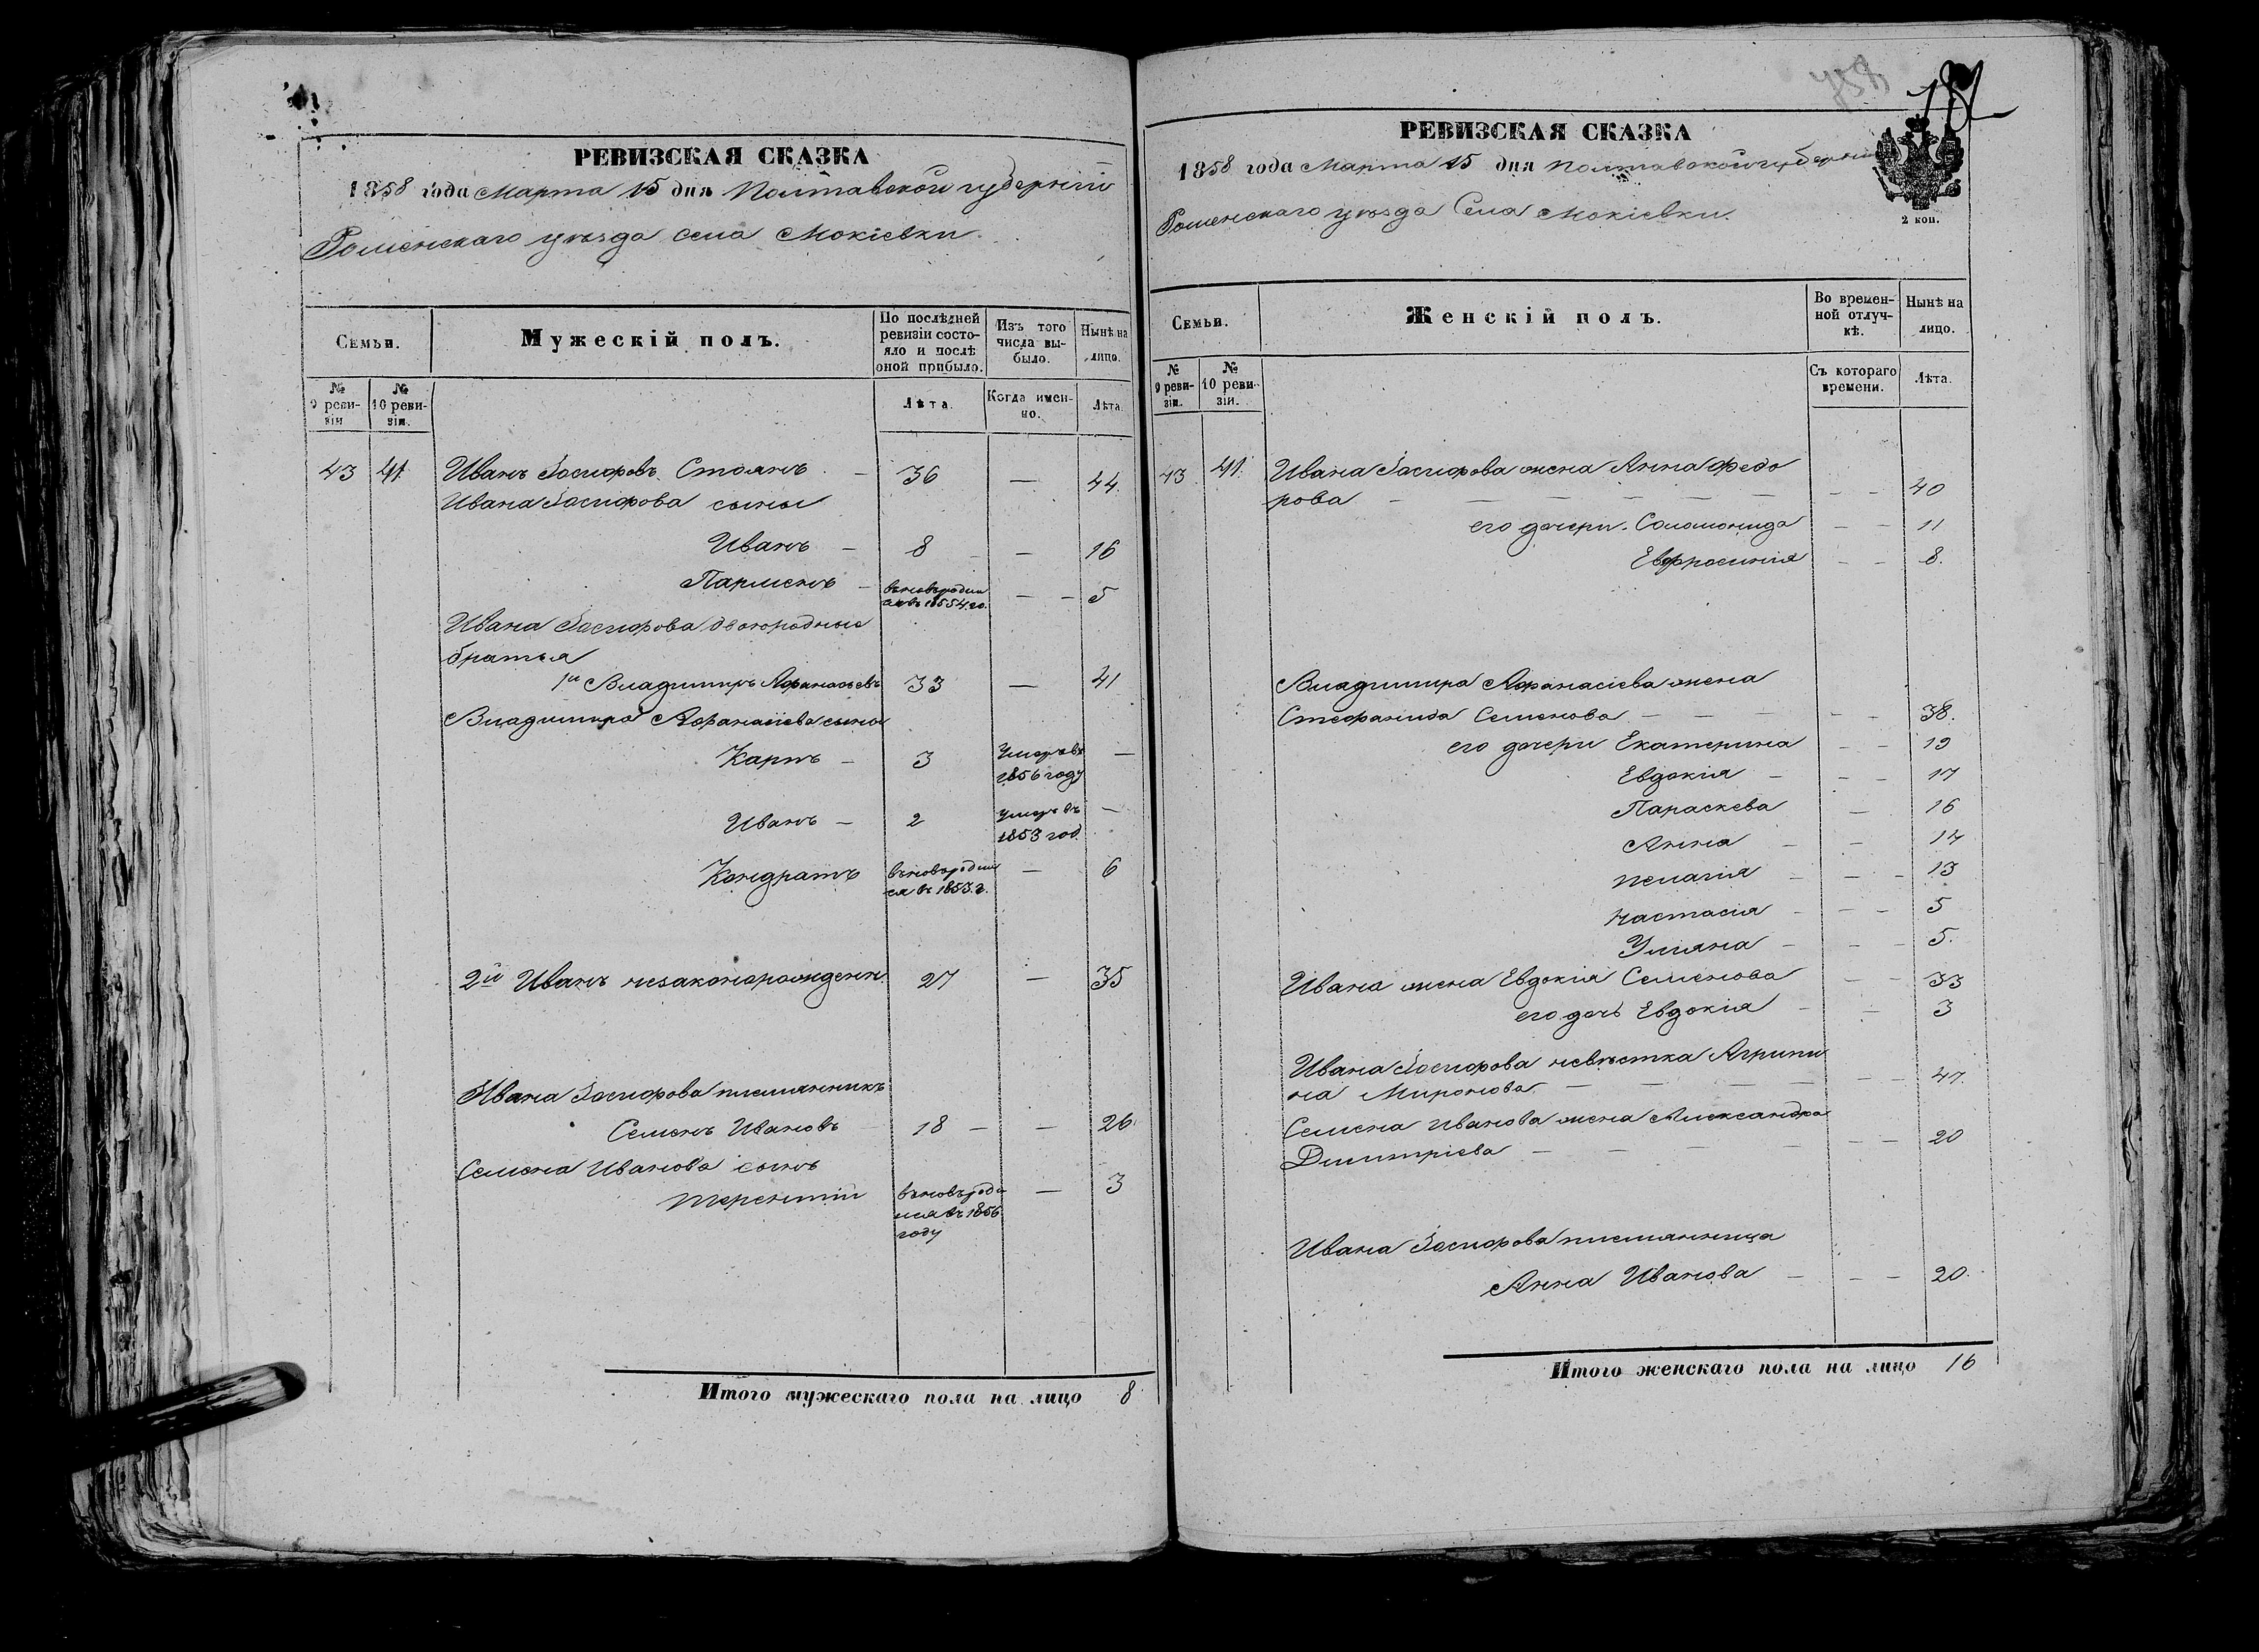 РЕВИЗСКАЯ СКАЗКА
1858 года Марта 15 дня Полтавской губерніи
Роменскаго уѣзда села Мокіевки.
Семьи.
Мужескій полъ.
По послѣдней ревизіи состояло и послѣ оной прибыло.
Изъ того числа выбыло.
Нынѣ на лицо.
№ 9 ревизіи
№ 10 ревизіи.
Лѣта.
Когда именно.
Лѣта.
43 41. Иванъ Іосифовъ Стоянъ — 36 — 44.
Ивана Іосифова сыны
Иванъ — 8 — 16
Парменъ — вновьродил
ся въ 1854 го. — — 5
Ивана Іосифова двоюродные
братья
1й Владимиръ Афанасьевъ 33 — 41
Владимира Афанасіева сыны
Карпъ — 3 Умеръ въ
1856 году —
Иванъ — 2 умеръ въ
1853 год. —
Кондратъ вновьродил
ся въ 1853 г. — 6
2й Иванъ незаконорожденн. 27 — 35
Ивана Іосифова племянникъ
Семенъ Ивановъ 18 — — 26.
Семена Иванова сынъ
Терентій вновьроди
лся въ 1856
году — 3
Итого мужескаго пола на лицо 8
РЕВИЗСКАЯ СКАЗКА
1858 года Марта 15 дня Полтавской губерніи
Роменскаго уѣзда Села Мокіевки.
2 коп.
Семьи.
Женскій полъ.
Во временной отлучкѣ.
Нынѣ на лицо.
№ 9 ревизіи.
№ 10 ревизіи.
Съ котораго времени.
Лѣта.
43 41. Ивана Іосифова жена Анна Федо
рова — — — — — — — — 40
его дочери. Соломонида — — 11
Евфросинія — — 8.
Владимира Афанасіева жена
Стефанида Семенова — — — — — 38.
его дочери Екатерина — — 19
Евдокія — — — 17
Параскева — 16
Анна — — 14
Пелагія — — — 13
Настасія — — — 5
Уліяна — — — 5.
Ивана жена Евдокія Семенова — — 33
его дочь Евдокія — — 3
Ивана Іосифова невѣстка Агрипи
на Миронова. — — — — — — 47.
Семена Иванова жена Александра
Димитріева — — — — — 20
Ивана Іосифова племянница
Анна Иванова — — — 20.
Итого женскаго пола на лицо 16